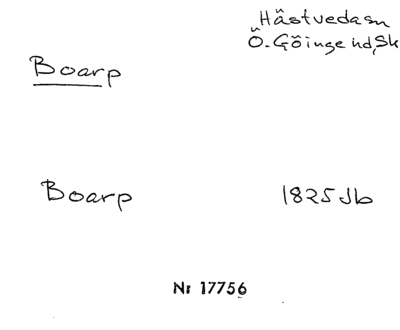 Hästveda sn
Ö. Göinge hd, Sk
Boarp
Boarp 1825 Jb
Nr 17756